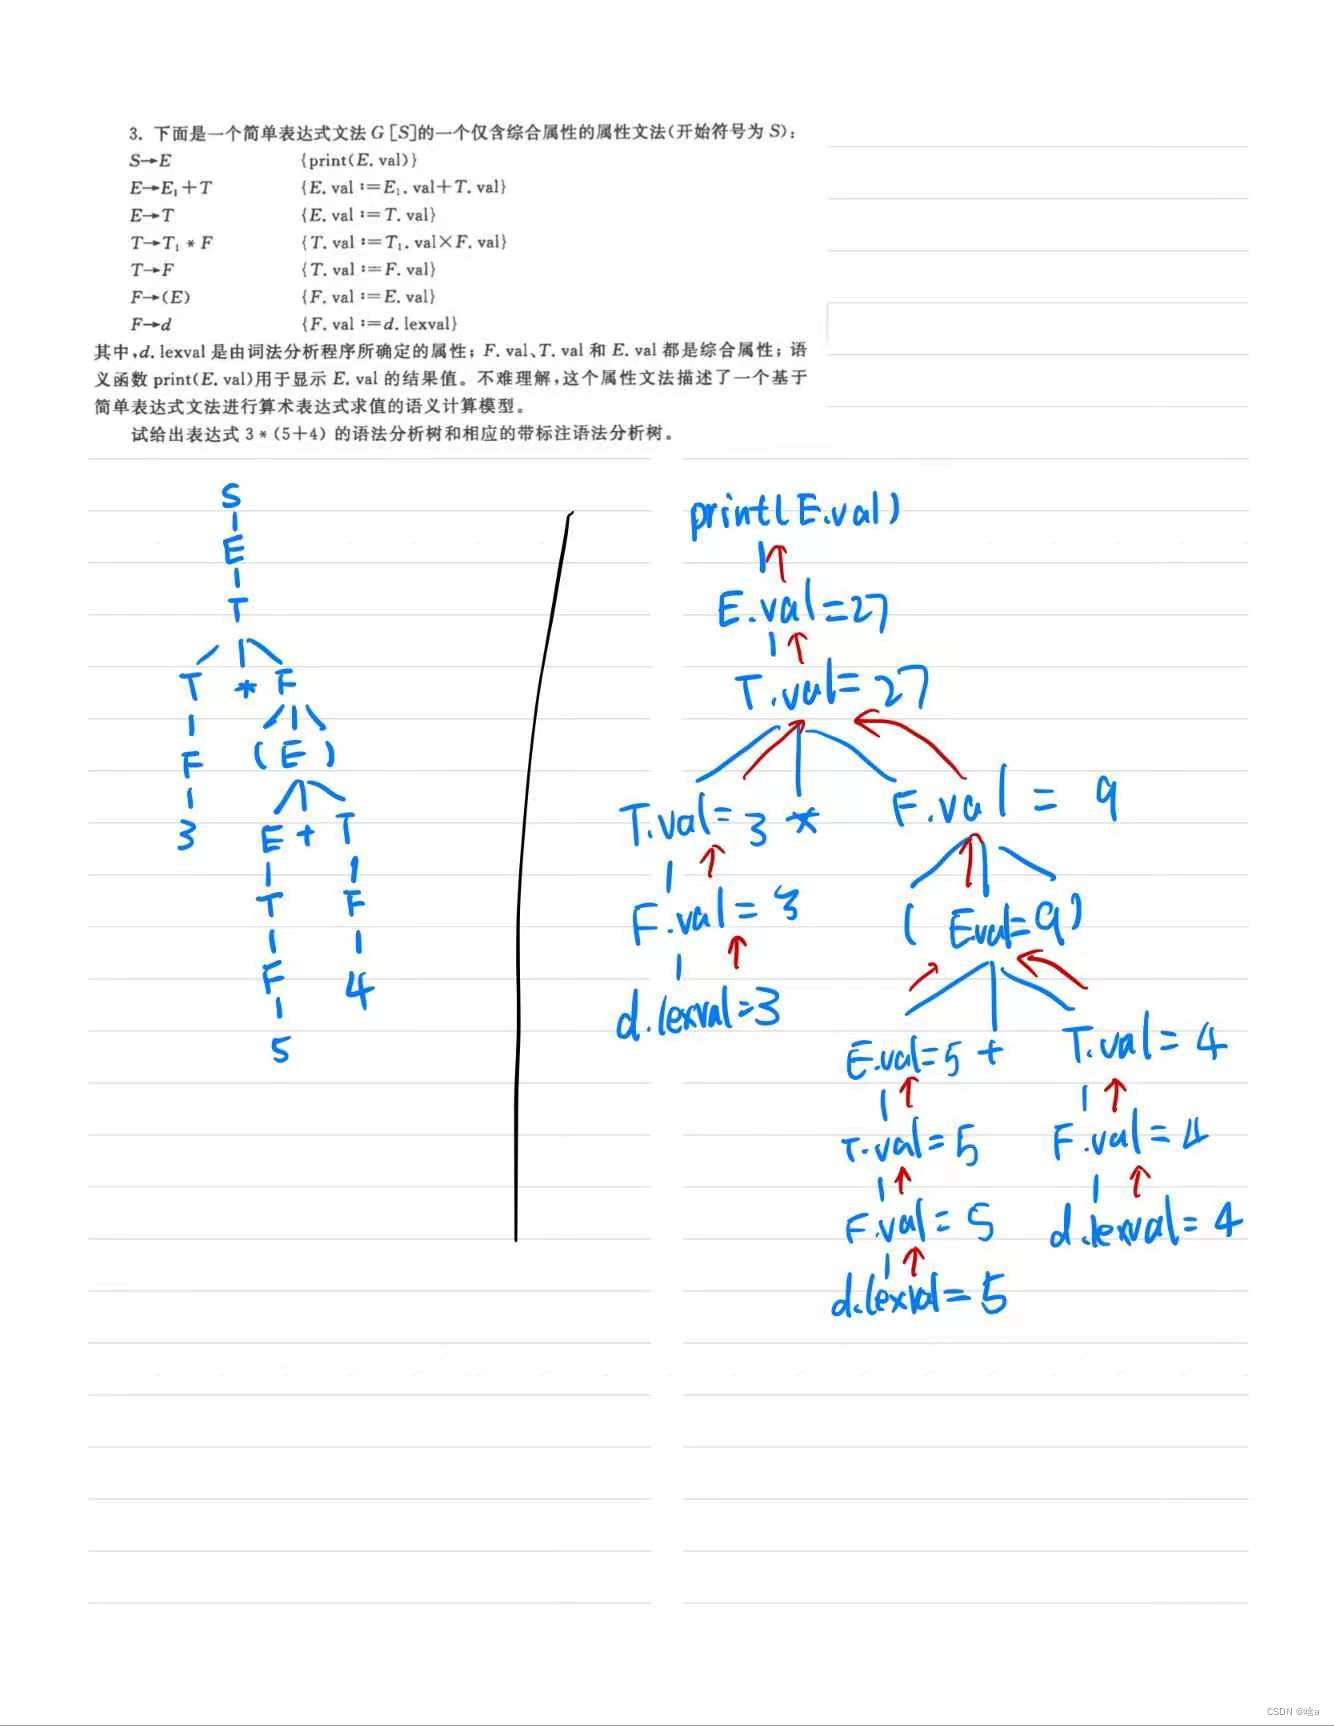 3. 下面是一个简单表达式文法 G [S]的一个仅含综合属性的属性文法(开始符号为 S):
S→E {print(E. val)}
E→E₁+T {E. val :=E₁. val+T. val}
E→T {E. val :=T. val}
T→T₁ * F {T. val :=T₁. val×F. val}
T→F {T. val :=F. val}
F→(E) {F. val :=E. val}
F→d {F. val :=d. lexval}
其中,d. lexval 是由词法分析程序所确定的属性; F. val、T. val 和 E. val 都是综合属性; 语
义函数 print(E. val)用于显示 E. val 的结果值。不难理解,这个属性文法描述了一个基于
简单表达式文法进行算术表达式求值的语义计算模型。
试给出表达式 3 * (5+4) 的语法分析树和相应的带标注语法分析树。
S
E
T
T * F
F ( E )
3 E + T
T F
F 4
5
print(E.val)
E.val=27
T.val=27
T.val=3 * F.val=9
F.val=3 ( E.val=9 )
d.lexval=3
E.val=5 + T.val=4
T.val=5 F.val=4
F.val=5 d.lexval=4
d.lexval=5
CSDN @啥a